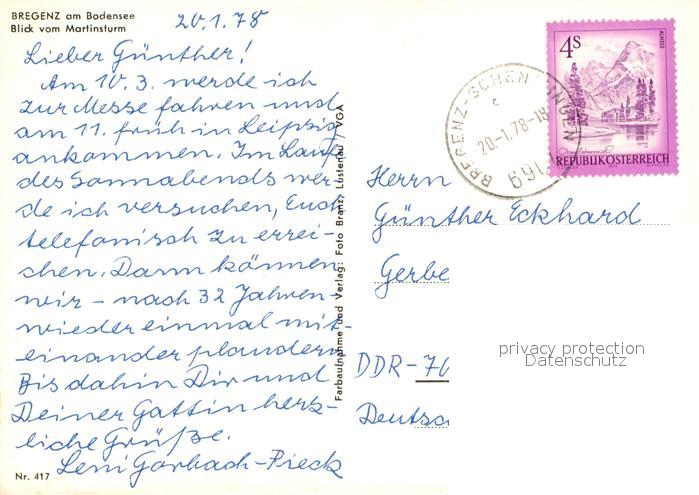 BREGENZ am Bodensee
Blick vom Martinsturm
20.1.78
Lieber Günther!
Am 10.3. werde ich
zur Messe fahren und
am 11. früh in Leipzig
ankommen. Im Laufe
des Sonnabends wer-
de ich versuchen, Euch
telefonisch zu errei-
chen. Dann können
wir - nach 32 Jahren -
wieder einmal mit-
einander plaudern.
Bis dahin Dir und
Deiner Gattin herz-
liche Grüße.
Leni Garbach-Pieck
Nr. 417
Farbaufnahme und Verlag: Foto Branz, Lustenau VGA
4s
ALMSEE
REPUBLIK ÖSTERREICH
BREGENZ-SCHEN
20-1.78-18
c
691
Herrn
Günther Eckhard
Gerbe
DDR-70
Deutsc
privacy protection
Datenschutz